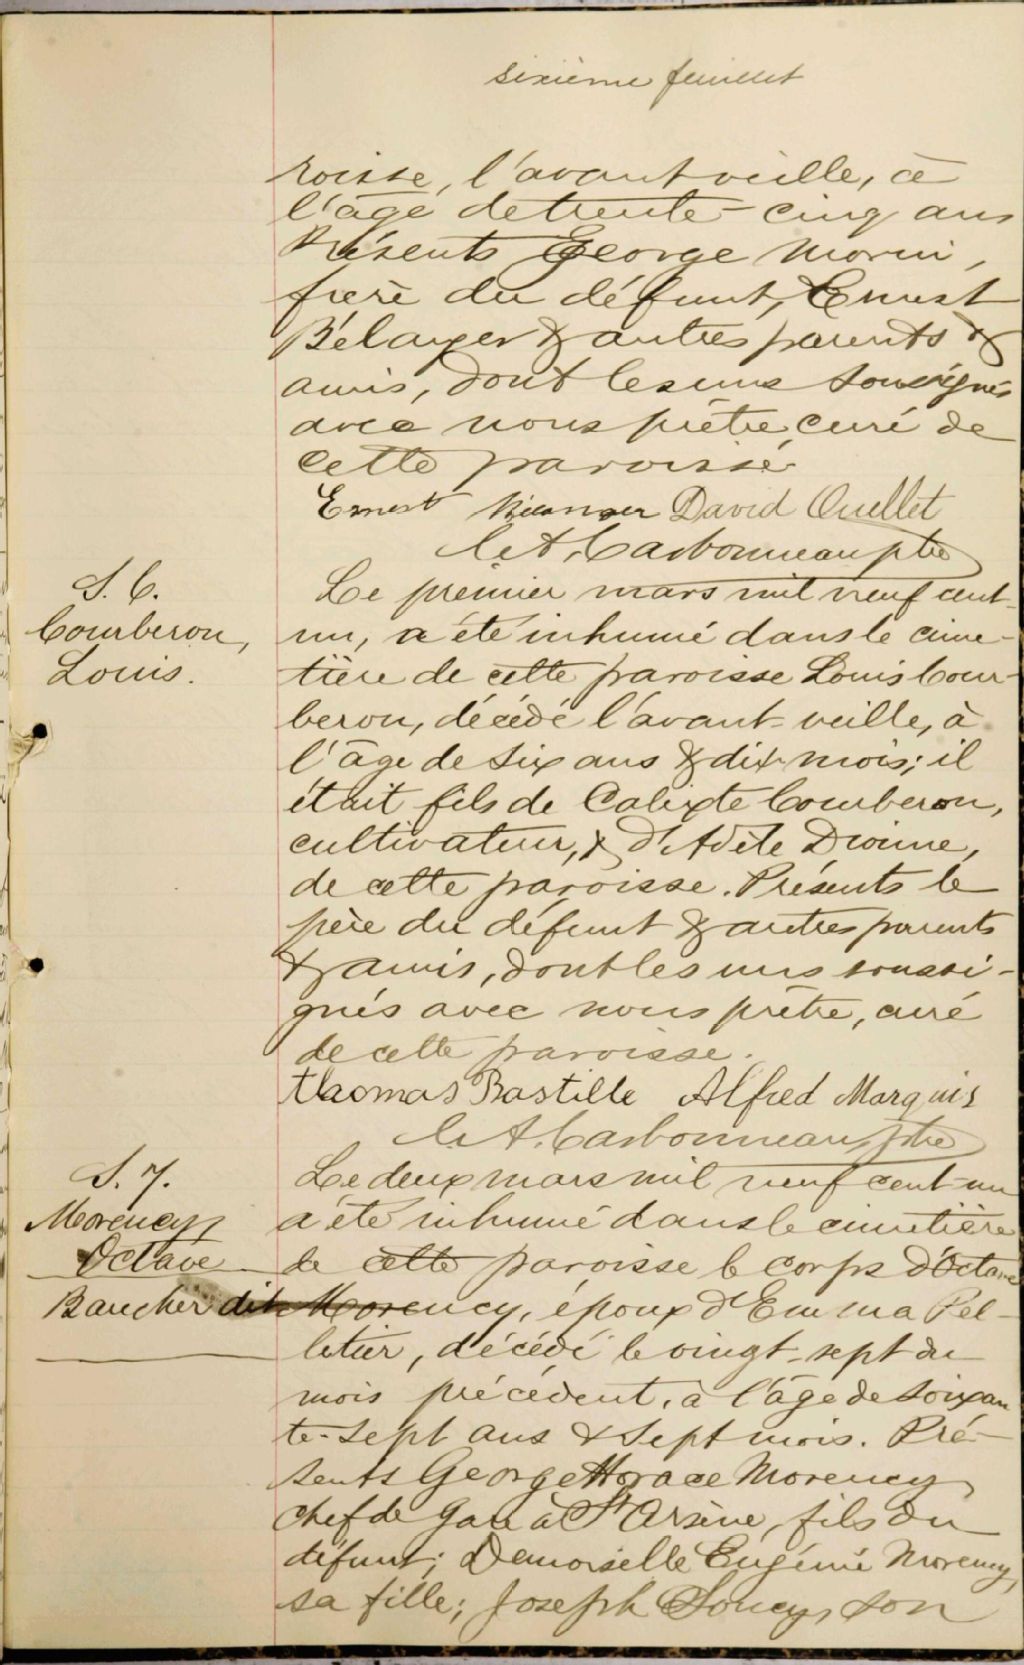 sixième feuillet
roisse, l'avant veille, à
l'âge de trente-cinq ans
Présents George Morin,
frère du défunt, Ernest
Bélanger & autres parents &
amis, dont les uns soussignés
avec nous prêtre, curé de
cette paroisse
Ernest Bélanger David Ouellet
Ls A. Carbonneau ptre
S. 6.
Courberon,
Louis.
Le premier mars mil neuf cent-
un, a été inhumé dans le cime-
tière de cette paroisse Louis Cour-
beron, décédé l'avant-veille, à
l'âge de six ans & dix mois; il
était fils de Calixte Courberon,
cultivateur, & d'Adèle Dionne,
de cette paroisse. Présents le
père du défunt & autres parents
& amis, dont les uns soussi-
gnés avec nous prêtre, curé
de cette paroisse.
thaomas Bastille Alfred Marquis
Ls A. Carbonneau ptre
S. 7.
Morency,
Octave
Baucher dit
Le deux mars mil neuf cent-un
a été inhumé dans le cimetière
de cette paroisse le corps d'Octave
Morency, époux d'Emma Pel-
letier, décédé le vingt-sept du
mois précédent, à l'âge de soixan
te-sept ans & sept mois. Pré-
sents George Horace Morency
chef de gare à St Arsène, fils du
défunt; Demoiselle Eugénie Morency,
sa fille; Joseph Soucy, son